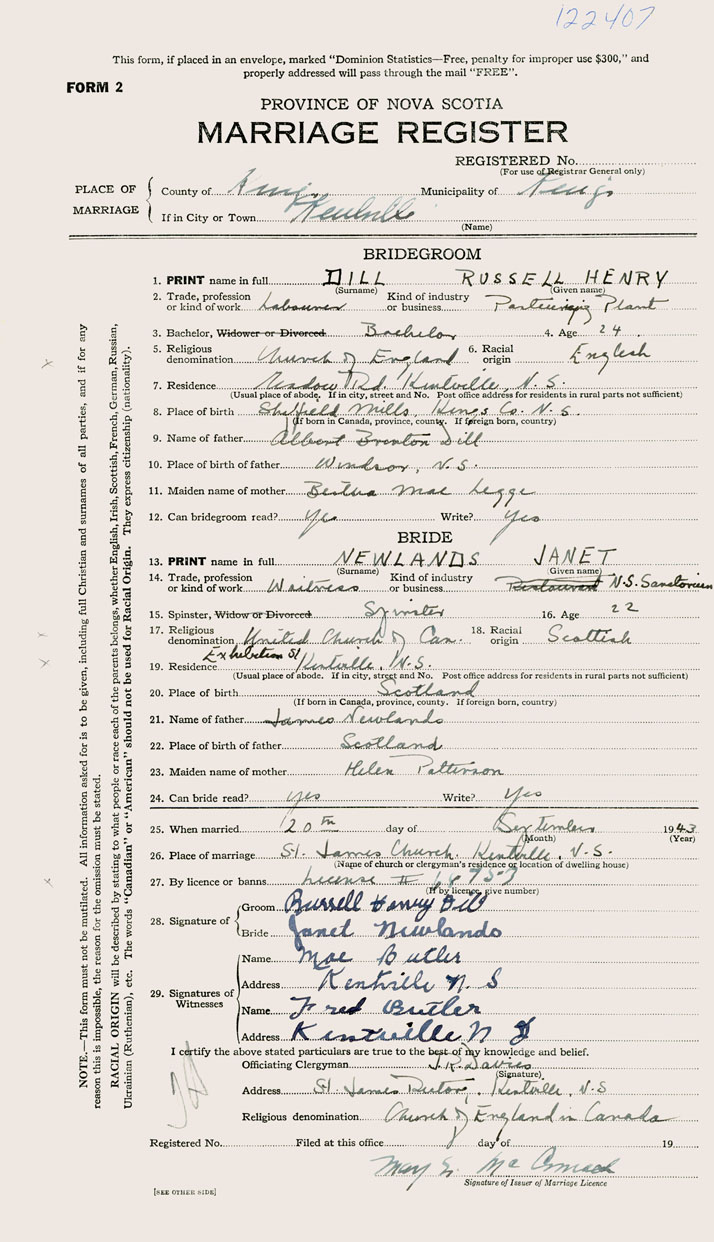 122407
This form, if placed in an envelope, marked "Dominion Statistics—Free, penalty for improper use $300," and
properly addressed will pass through the mail "FREE".
FORM 2
PROVINCE OF NOVA SCOTIA
MARRIAGE REGISTER
REGISTERED No.
(For use of Registrar General only)
PLACE OF MARRIAGE
County of Kings Municipality of Kings
If in City or Town Kentville
(Name)
BRIDEGROOM
1. PRINT name in full DILL RUSSELL HENRY
(Surname) (Given name)
2. Trade, profession or kind of work Labourer Kind of industry or business Plant
3. Bachelor, Widower or Divorced. Bachelor 4. Age 24
5. Religious denomination Church of England 6. Racial origin English
7. Residence Meadow Rd. Kentville, N.S.
(Usual place of abode. If in city, street and No. Post office address for residents in rural parts not sufficient)
8. Place of birth Sheffield Mills, Kings Co. N.S.
(If born in Canada, province, county. If foreign born, country)
9. Name of father Albert Brenton Dill
10. Place of birth of father Windsor, N.S.
11. Maiden name of mother Bertha Mae Legge
12. Can bridegroom read? Yes Write? Yes
BRIDE
13. PRINT name in full NEWLANDS JANET
(Surname) (Given name)
14. Trade, profession or kind of work Waitress Kind of industry or business Restaurant N.S. Sanatorium
15. Spinster, Widow or Divorced Spinster 16. Age 22
17. Religious denomination United Church of Can. 18. Racial origin Scottish
19. Residence Exhibition St Kentville, N.S.
(Usual place of abode. If in city, street and No. Post office address for residents in rural parts not sufficient)
20. Place of birth Scotland
(If born in Canada, province, county. If foreign born, country)
21. Name of father James Newlands
22. Place of birth of father Scotland
23. Maiden name of mother Helen Patterson
24. Can bride read? yes Write? Yes
25. When married 20th day of September 1943
(Month) (Year)
26. Place of marriage St. James Church, Kentville, N.S.
(Name of church or clergyman's residence or location of dwelling house)
27. By licence or banns License #
(If by licence, give number)
28. Signature of
Groom Russell Henry Dill
Bride Janet Newlands
29. Signatures of Witnesses
Name Mae Butler
Address Kentville N.S
Name Fred Butler
Address Kentville N S
I certify the above stated particulars are true to the best of my knowledge and belief.
Officiating Clergyman J.R. Davies
(Signature)
Address St. James Rectory, Kentville, N.S
Religious denomination Church of England in Canada
Registered No. Filed at this office day of 19
May McCormack
Signature of Issuer of Marriage Licence
[SEE OTHER SIDE]
NOTE.—This form must not be mutilated. All information asked for is to be given, including full Christian and surnames of all parties, and if for any
reason this is impossible, the reason for the omission must be stated.
RACIAL ORIGIN will be described by stating to what people or race each of the parents belongs, whether English, Irish, Scottish, French, German, Russian,
Ukrainian (Ruthenian), etc. The words "Canadian" or "American" should not be used for Racial Origin. They express citizenship (nationality).